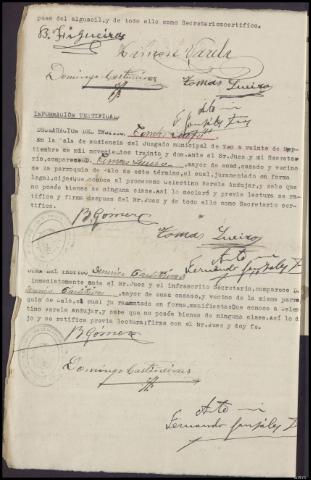 pase del alguacil,y de todo ello como Secretariocertifico.
B. Figueiras
Ramon Varela
Domingo Castiñeiras
Tomas Sueiro
Ante mi
INFORMACION TESTIFICAL
DECLARACION DEL TESTIGO Tomas
En la sala de audiencia del Juzgado municipal de a veinte de
tiembre de mil novecientos treinta y dos,ante el Sr.Juez y mi Secreta
rio,comparece D. Tomas Sueiro mayor de edad,casado y vecino
de la parroquia de de este término,el cual,juramentado en forma
legal,dijo:que conoce al procesado Celestino Varela Andujar,y sabe que
no posee bienes de ninguna clase.Así lo declaró y previa lectura se ra-
tifica y firma despues del Sr.Juez y de todo ello como Secretario cer-
tifico.
B Gómez
Tomas Sueiro
Ante mi
Fernando González
OTRA DEL TESTIGO,
inmediatamente ante el Sr.Juez y el infrascrito Secretario,comparece D
mayor de edad casado,y vecino de la misma parro-
quia de el cual juramentado en forma,manifiesta:Que conoce a Celes-
tino Varela Andujar,y sabe que no posee bienes de ninguna clase.Así lo di
jo y se ratifica previa lectura.Firma con el Sr.Juez y doy fe.
B Gómez
Domingo Castiñeiras
Ante mi
Fernando González